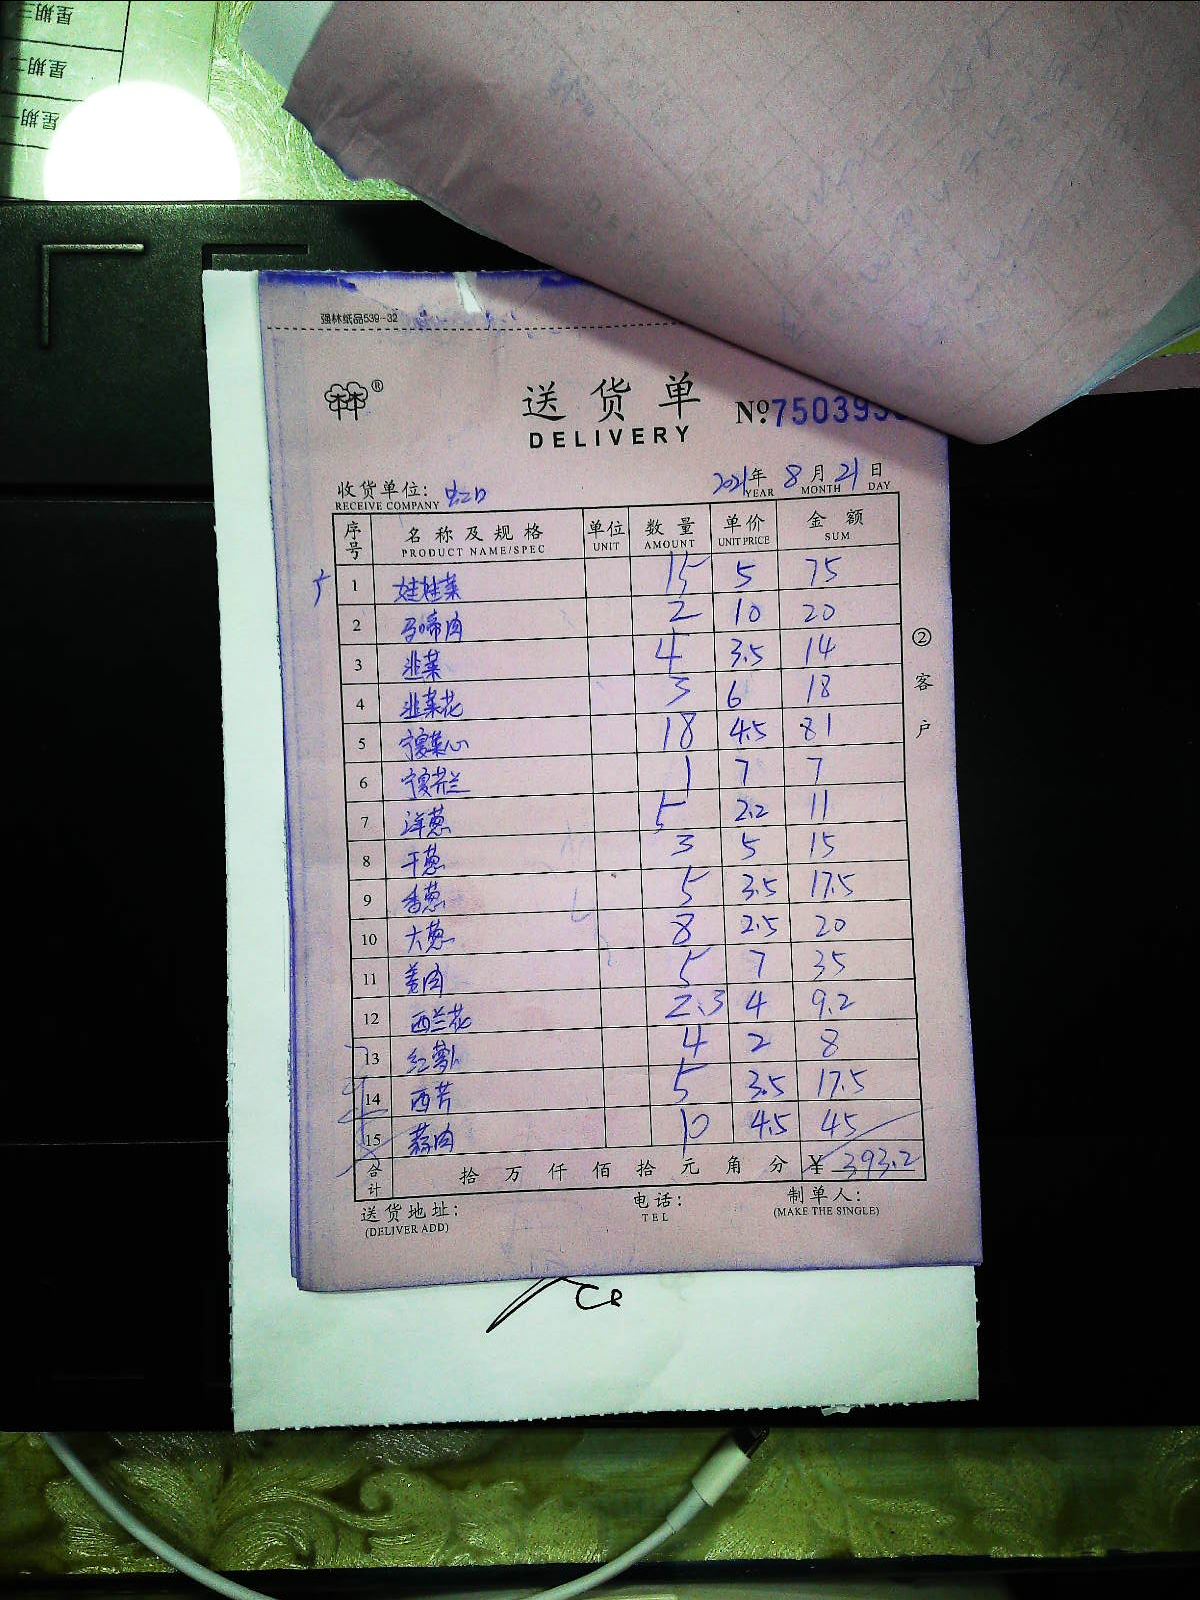 星期三
星期二
星期一
强林纸品539-32
林林®
送货单
DELIVERY
№:7503993
收货单位: 虹口 2021年 8月 21日
RECEIVE COMPANY YEAR MONTH DAY
序号 名称及规格 单位 数量 单价 金额
PRODUCT NAME/SPEC UNIT AMOUNT UNIT PRICE SUM
1 娃娃菜 15 5 75
2 马啼肉 2 10 20
3 韭菜 4 3.5 14
4 韭菜花 3 6 18
5 宁夏菜心 18 4.5 81
6 宁夏芥兰 1 7 7
7 洋葱 5 2.2 11
8 干葱 3 5 15
9 香葱 5 3.5 17.5
10 大葱 8 2.5 20
11 姜肉 5 7 35
12 西兰花 2.3 4 9.2
13 红萝卜 4 2 8
14 西芹 5 3.5 17.5
15 蒜肉 10 4.5 45
合计 拾 万 仟 佰 拾 元 角 分 ¥ 393.2
送货地址: 电话: 制单人:
(DELIVER ADD) TEL (MAKE THE SINGLE)
②客户